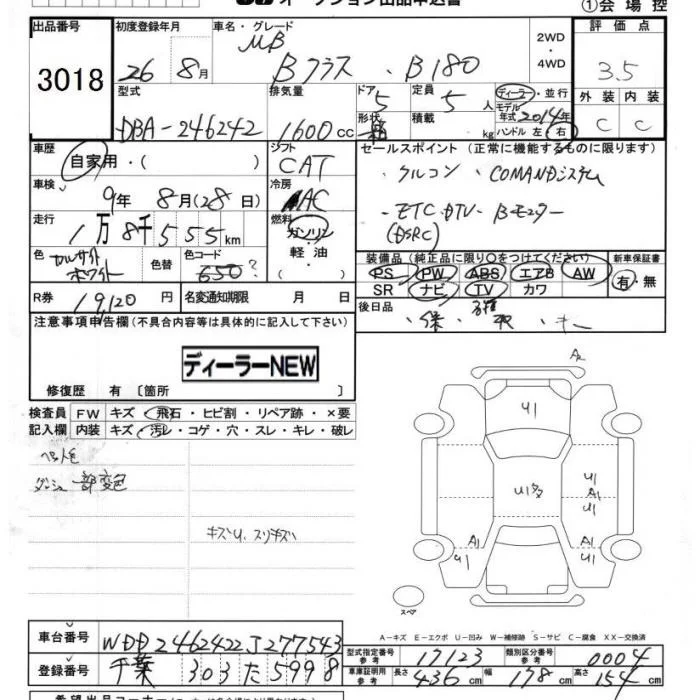 オークション出品申込書 ①会場控
出品番号 初度登録年月 車名・グレード 評価点
3018 26 8月 MB Bクラス・B180 2WD ・4WD 3.5
型式 排気量 ドア 形状 定員 積載 ディーラー・並行 外装 内装
DBA-246242 1600cc 5 箱 5人 kg モデル年式 2014年 ハンドル 左・右 C C
車歴 自家用・( ) シフト CAT セールスポイント (正常に機能するものに限ります)
車検 9年 8月(28日) 冷房 AC ・アルコン ・COMANDシステム
走行 1万8千555km 燃料 ガソリン 軽油 ・ETC・DTV・Bモニター
(DSRC)
色 カルサイトホワイト 色替 色コード 650? 装備品 (純正品に限り○をつけてください) 新車保証書
PS PW ABS エアB AW 有・無
SR ナビ TV カワ
R券 19,120円 名変通知期限 月 日 後日品
・保 ・取 ・キー
注意事項申告欄(不具合内容等は具体的に記入して下さい)
ディーラーNEW
修復歴 有〔箇所 〕
検査員 FW キズ・飛石・ヒビ割・リペア跡・×要
記入欄 内装 キズ・汚レ・コゲ・穴・スレ・キレ・破レ
ダッシュ一部変色
キズU、スリキズ
A2
U1
U1多
U1
A1
U1
A1
U1
A1
U1
スペア
A-キズ E-エクボ U-凹み W-補修跡 S-サビ C-腐食 XX-交換済
車台番号 WDD2462422J277543 型式指定番号 参考 17123 類別区分番号 参考 0004
登録番号 千葉 303 た 5998 車庫証明用 参考 長さ 436cm 幅 178cm 高さ 154cm